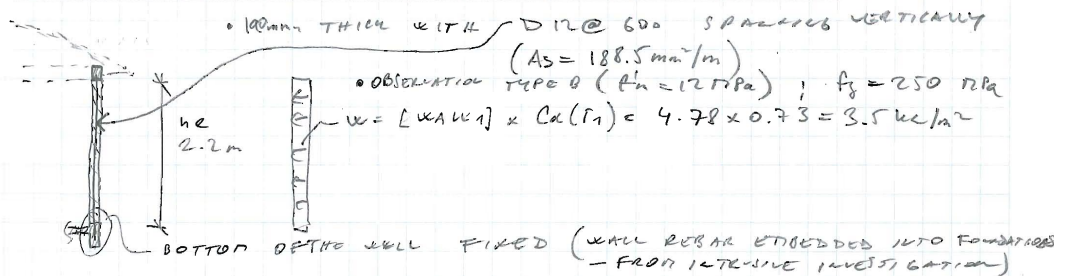 • 190mm THICK WITH D12@ 600 SPACING VERTICALLY
(As = 188.5 mm²/m)
• OBSERVATION TYPE B (f'm = 12 MPa) ; fy = 250 MPa
W = [WALL 1] x Cd(T1) = 4.78 x 0.73 = 3.5 kN/m²
he
2.2m
BOTTOM OF THE WALL FIXED (WALL REBAR EMBEDDED INTO FOUNDATIONS
- FROM INTRUSIVE INVESTIGATION)